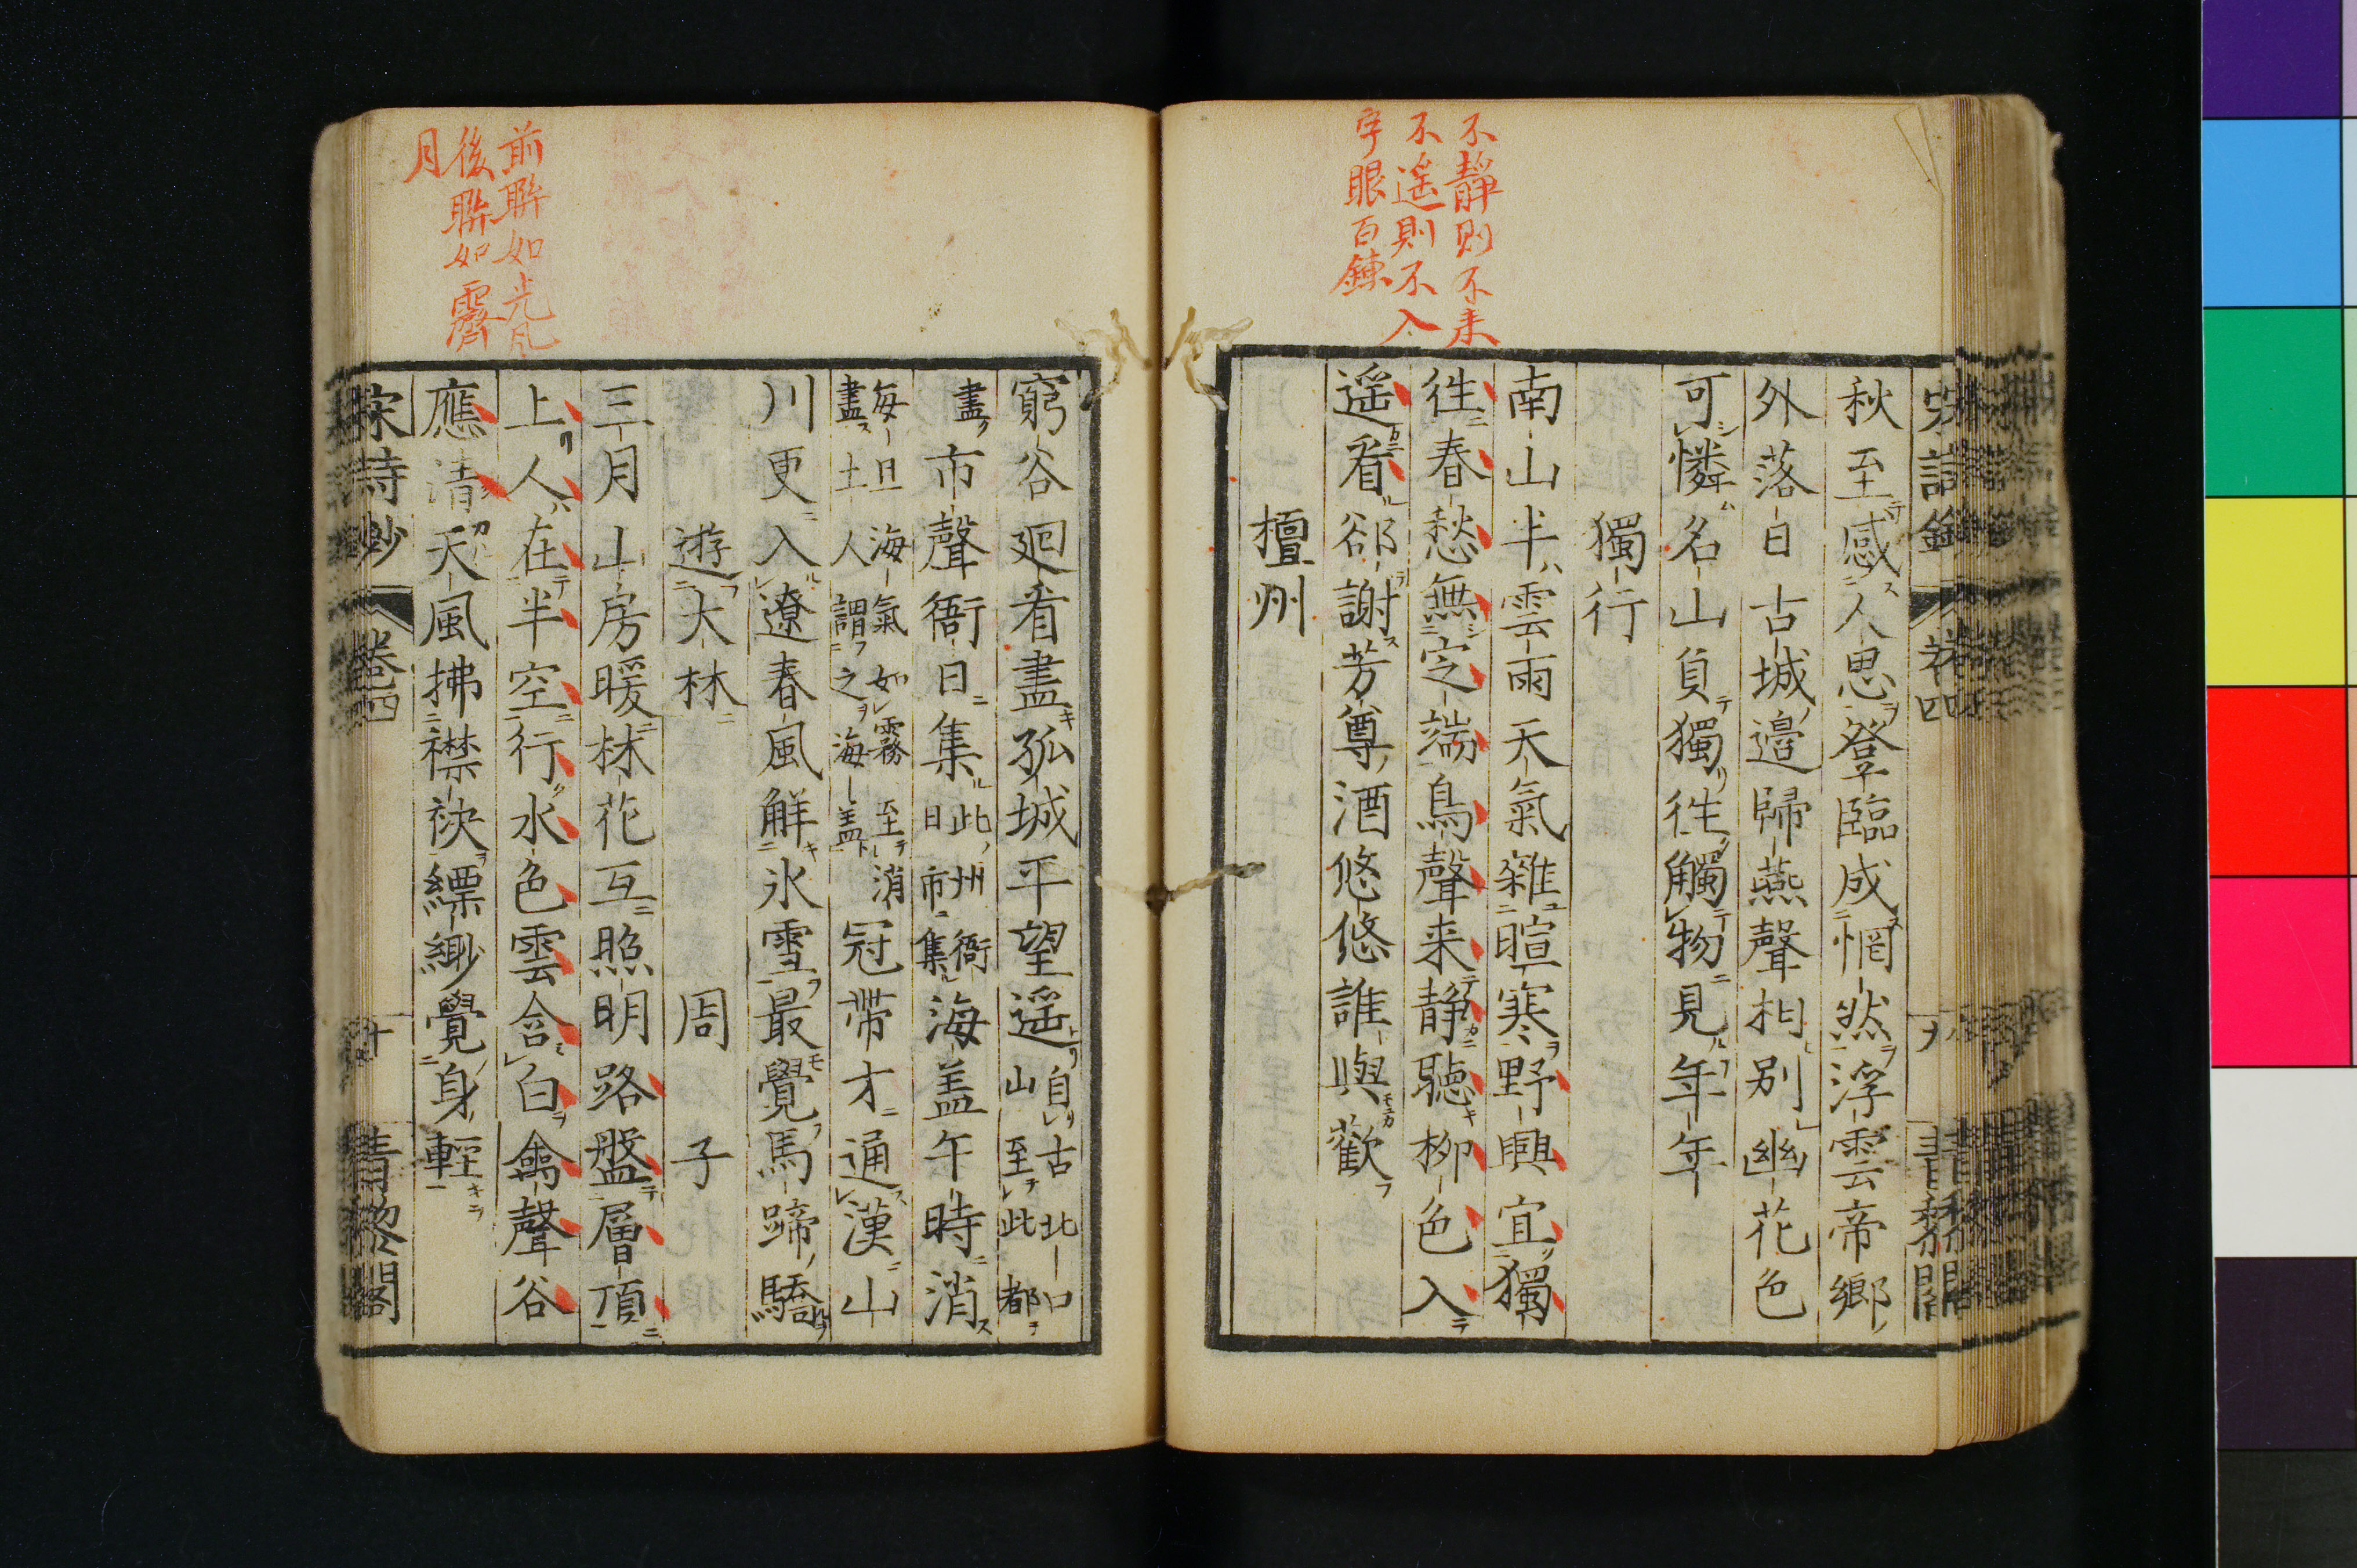 不静則不来
不遥則不入
字眼百錬
秋至感人思登臨成惘然浮雲帝郷
外落日古城邉歸燕聲相別幽花色
可憐名山負獨徃觸物見年年
獨行
南山半雲雨天氣雜暄寒野興宜獨
徃春愁無定端鳥聲来静聴柳色入
遥看郤謝芳尊酒悠悠誰與歡
檀州
前聨如光风
後聨如霽
月
窮谷廻看盡孤城平望遥自古北口
山至此都
盡市聲衙日集此州衙
日市集海盖午時消
毎旦海氣如霧至消
盡土人謂之海盖冠帶才通漢山
川更入遼春風鮮氷雪最覺馬蹄驕
遊大林 周子
三月山房暖林花互照明路盤層頂
上人在半空行水色雲含白禽聲谷
應清天風拂襟袂縹緲覺身輕
宋詩鈔 巻四 十 青藜閣